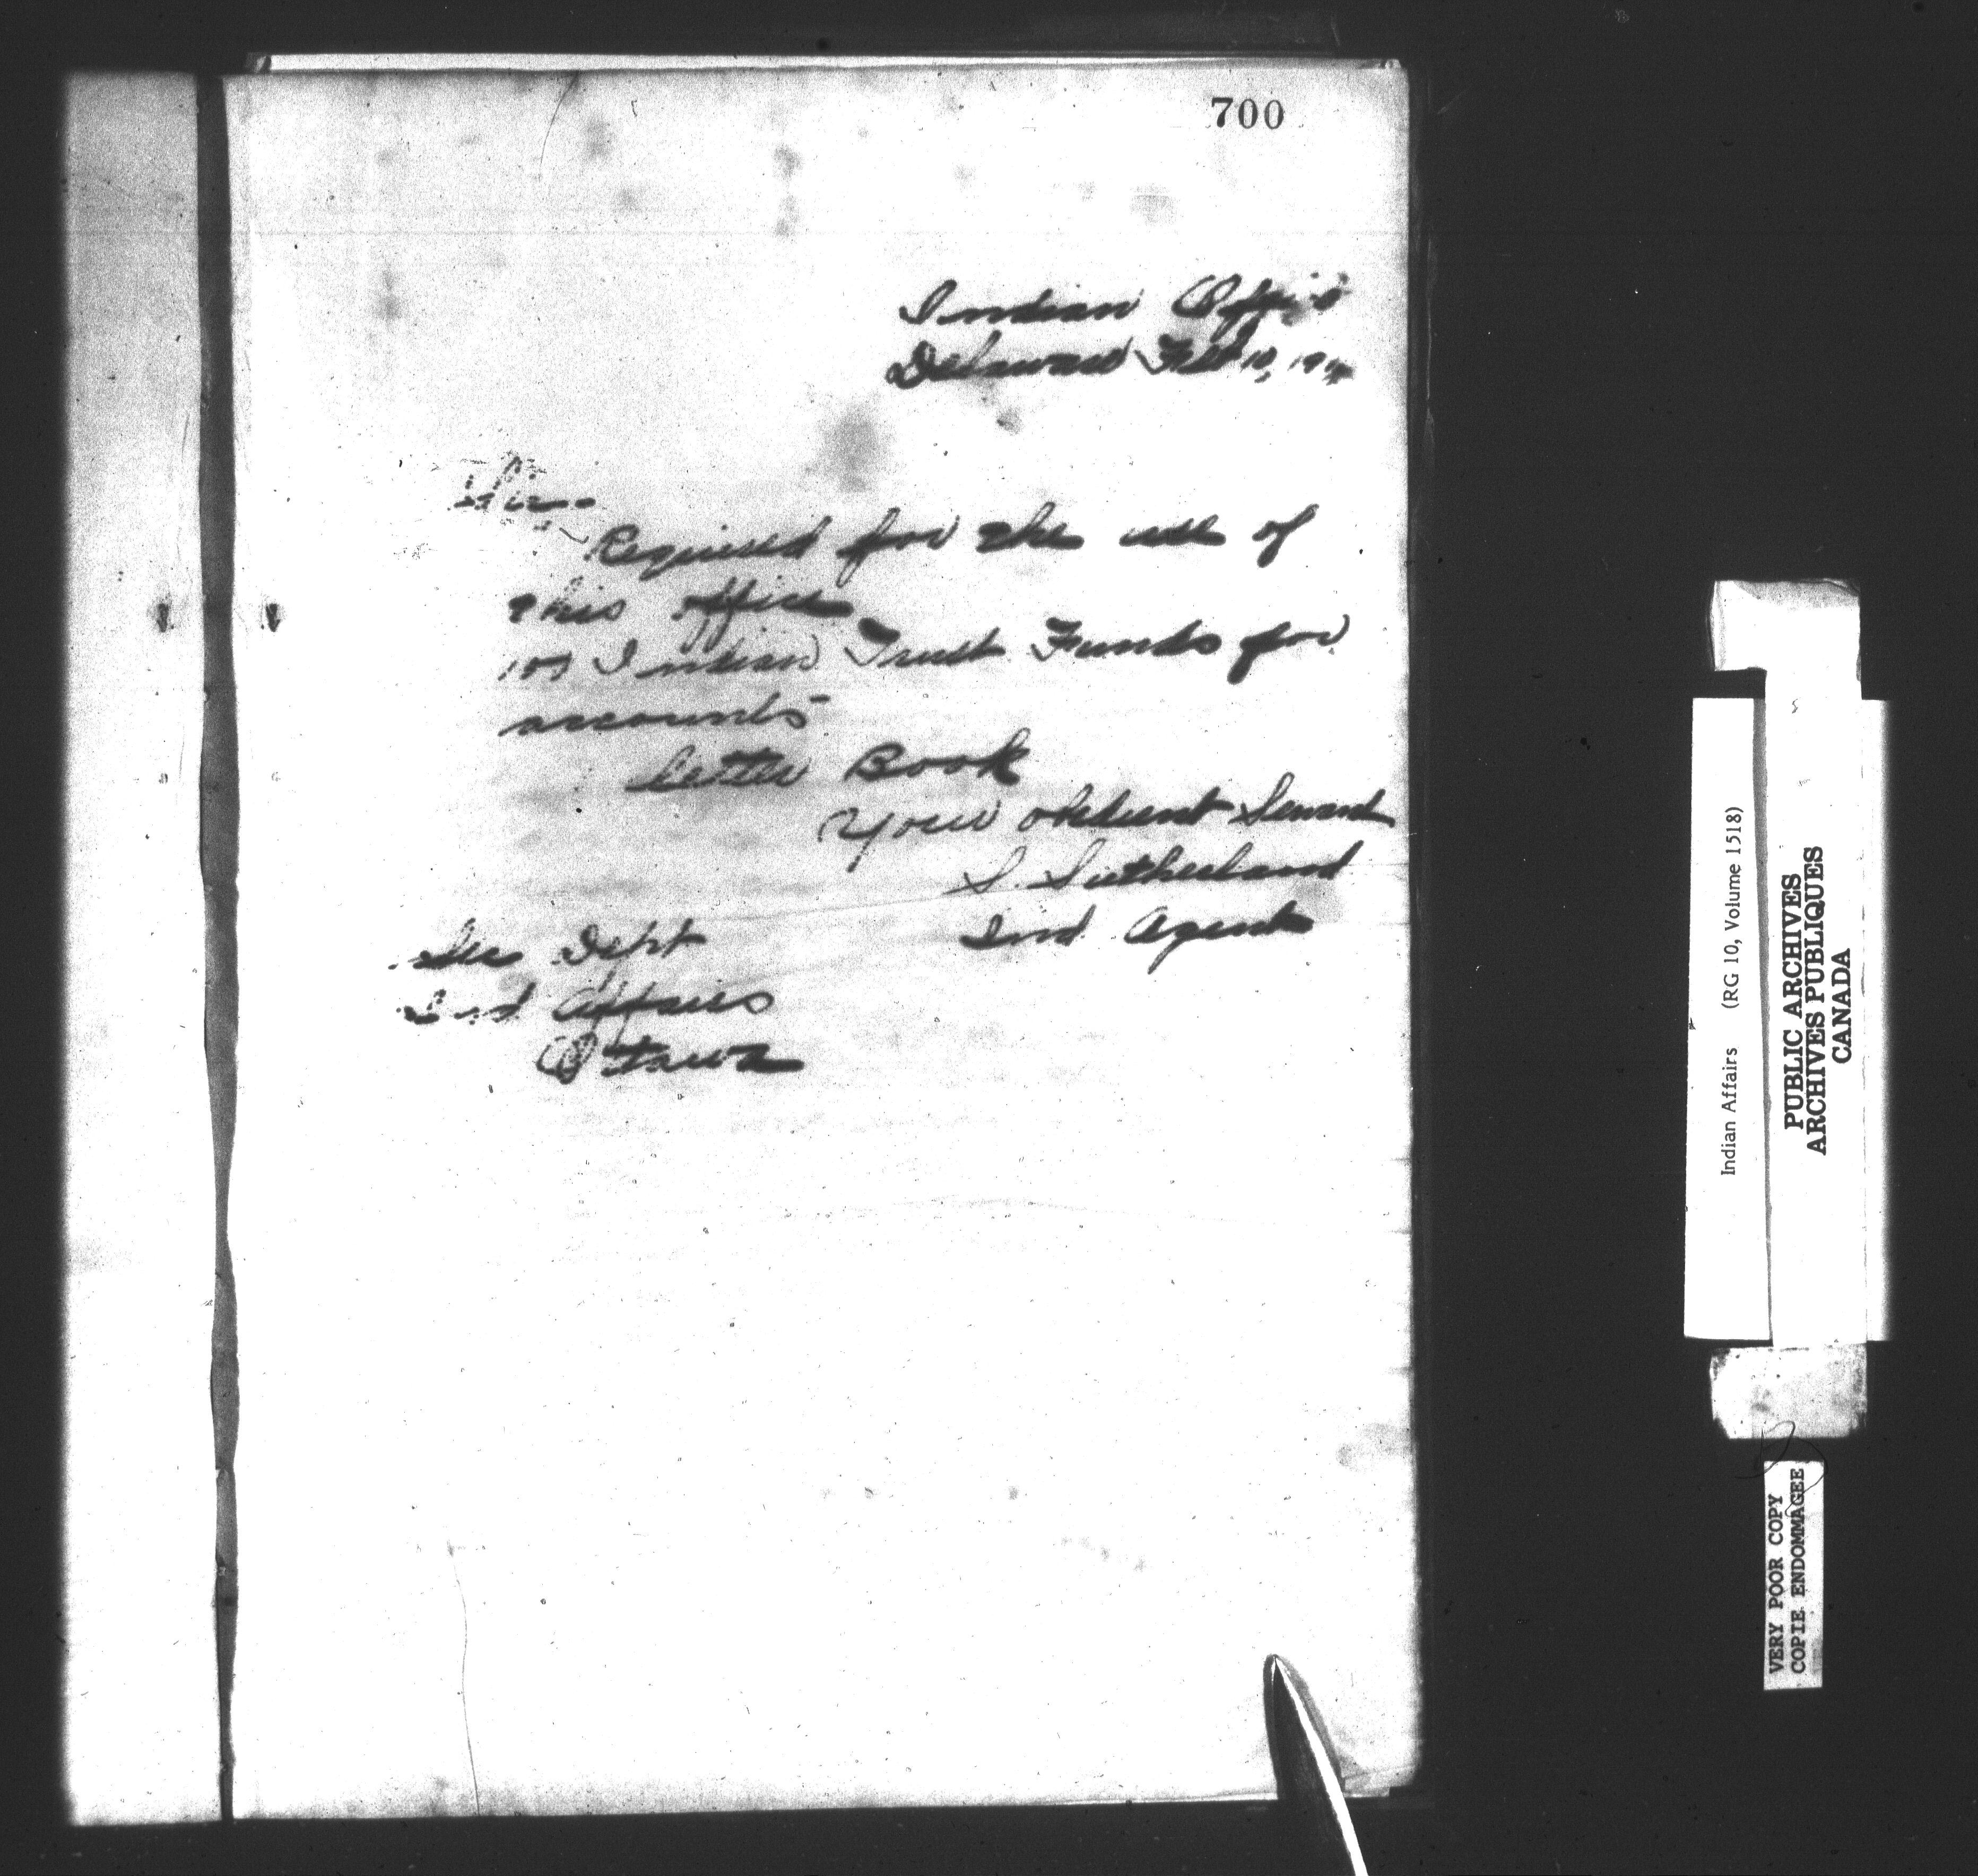 700
Indian Office
Delaware Feb 10, 19
Sir
Required for the use of
this office
107 Indian Trust Funds for
accounts
Letter Book
Your obedient Servant
S. Sutherland
Ind. Agent
Sec Dept
Ind Affairs
Ottawa
Indian Affairs (RG 10, Volume 1518)
PUBLIC ARCHIVES
ARCHIVES PUBLIQUES
CANADA
VERY POOR COPY
COPIE ENDOMMAGEE